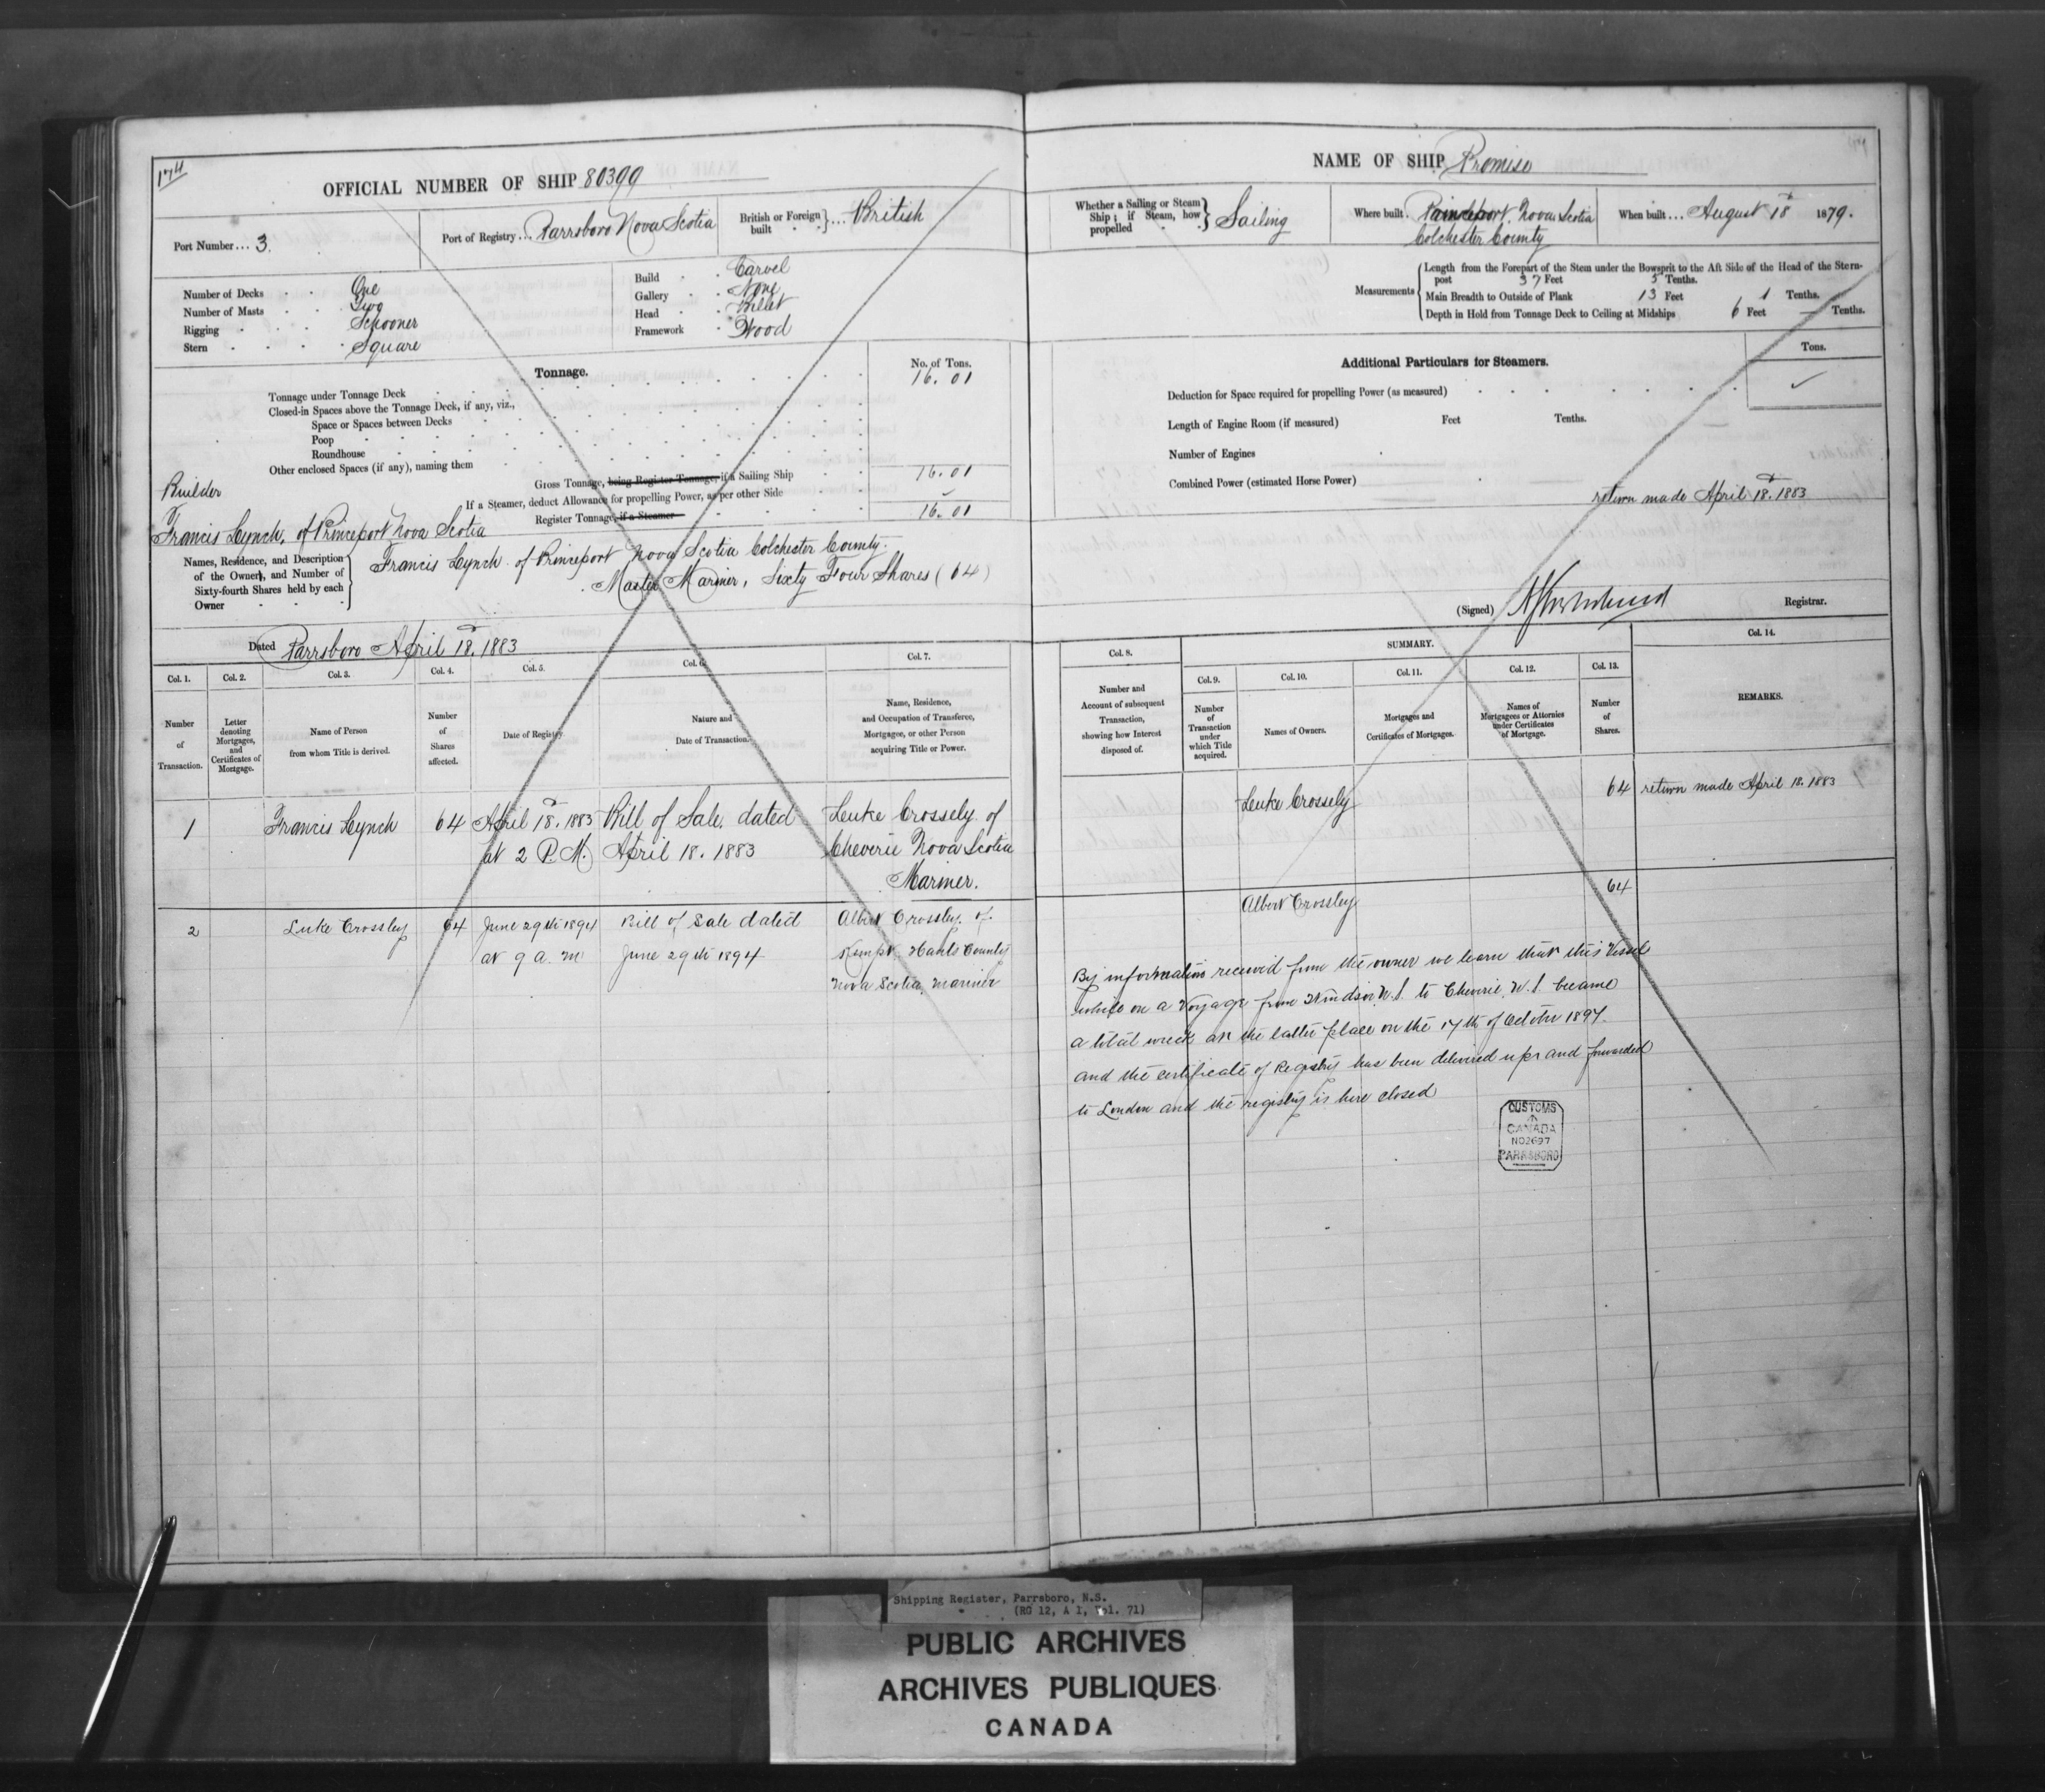 174
OFFICIAL NUMBER OF SHIP 80399
Port Number ... 3.
Port of Registry ... Parrsboro Nova Scotia
British or Foreign built } ... British
Number of Decks One
Number of Masts Two
Rigging Schooner
Stern Square
Build Carvel
Gallery None
Head Billet
Framework Wood
Tonnage.
No. of Tons.
Tonnage under Tonnage Deck 16.01
Closed-in Spaces above the Tonnage Deck, if any, viz.,
Space or Spaces between Decks
Poop
Roundhouse
Other enclosed Spaces (if any), naming them
Gross Tonnage, being Register Tonnage, if a Sailing Ship 16.01
If a Steamer, deduct Allowance for propelling Power, as per other Side ✓
Register Tonnage, if a Steamer 16.01
Builder
Francis Lynch, of Princeport Nova Scotia
Names, Residence, and Description of the Owners, and Number of Sixty-fourth Shares held by each Owner
Francis Lynch of Princeport Nova Scotia Colchester County.
Master Mariner, Sixty Four Shares (64)
Dated Parrsboro April 18. 1883
Col. 1. Col. 2. Col. 3. Col. 4. Col. 5. Col. 6. Col. 7.
Number of Transaction.
Letter denoting Mortgages, and Certificates of Mortgage.
Name of Person from whom Title is derived.
Number of Shares affected.
Date of Registry.
Nature and Date of Transaction.
Name, Residence, and Occupation of Transferee, Mortgagee, or other Person acquiring Title or Power.
1 Francis Lynch 64 April 18. 1883 Bill of Sale. dated Luke Crossely of
at 2 P.M. April 18. 1883 Cheverie Nova Scotia
Mariner.
2 Luke Crossley 64 June 29th 1894 Bill of Sale dated Albert Crossley of
at 9 a. m June 29th 1894 Kempt Hants County
Nova Scotia, mariner
NAME OF SHIP Promise
Whether a Sailing or Steam Ship; if Steam, how propelled } Sailing
Where built. Princeport. Nova Scotia
Colchester County
When built ... August 18 1879.
Measurements
Length from the Forepart of the Stem under the Bowsprit to the Aft Side of the Head of the Stern-
post 37 Feet 5 Tenths.
Main Breadth to Outside of Plank 13 Feet 1 Tenths.
Depth in Hold from Tonnage Deck to Ceiling at Midships 6 Feet — Tenths.
Additional Particulars for Steamers.
Tons.
Deduction for Space required for propelling Power (as measured) ✓
Length of Engine Room (if measured) Feet Tenths.
Number of Engines
Combined Power (estimated Horse Power)
return made April 18. 1883
(Signed) Registrar.
Col. 8. SUMMARY. Col. 14.
Col. 9. Col. 10. Col. 11. Col. 12. Col. 13.
Number and Account of subsequent Transaction, showing how Interest disposed of.
Number of Transaction under which Title acquired.
Names of Owners.
Mortgages and Certificates of Mortgages.
Names of Mortgagees or Attornies under Certificates of Mortgage.
Number of Shares.
REMARKS.
Luke Crossely 64 return made April 18. 1883
Albert Crossley 64
By information received from the owner we learn that this Vessel
while on a Voyage from Windsor, N.S. to Cheverie, N.S. became
a total wreck at the latter place on the 17th of October 1897.
and the certificate of Registry has been delivered up and forwarded
to London and the registry is here closed
CUSTOMS
CANADA
NO 2697
PARRSBORO
Shipping Register, Parrsboro, N.S.
(RG 12, A 1, Vol. 71)
PUBLIC ARCHIVES
ARCHIVES PUBLIQUES
CANADA